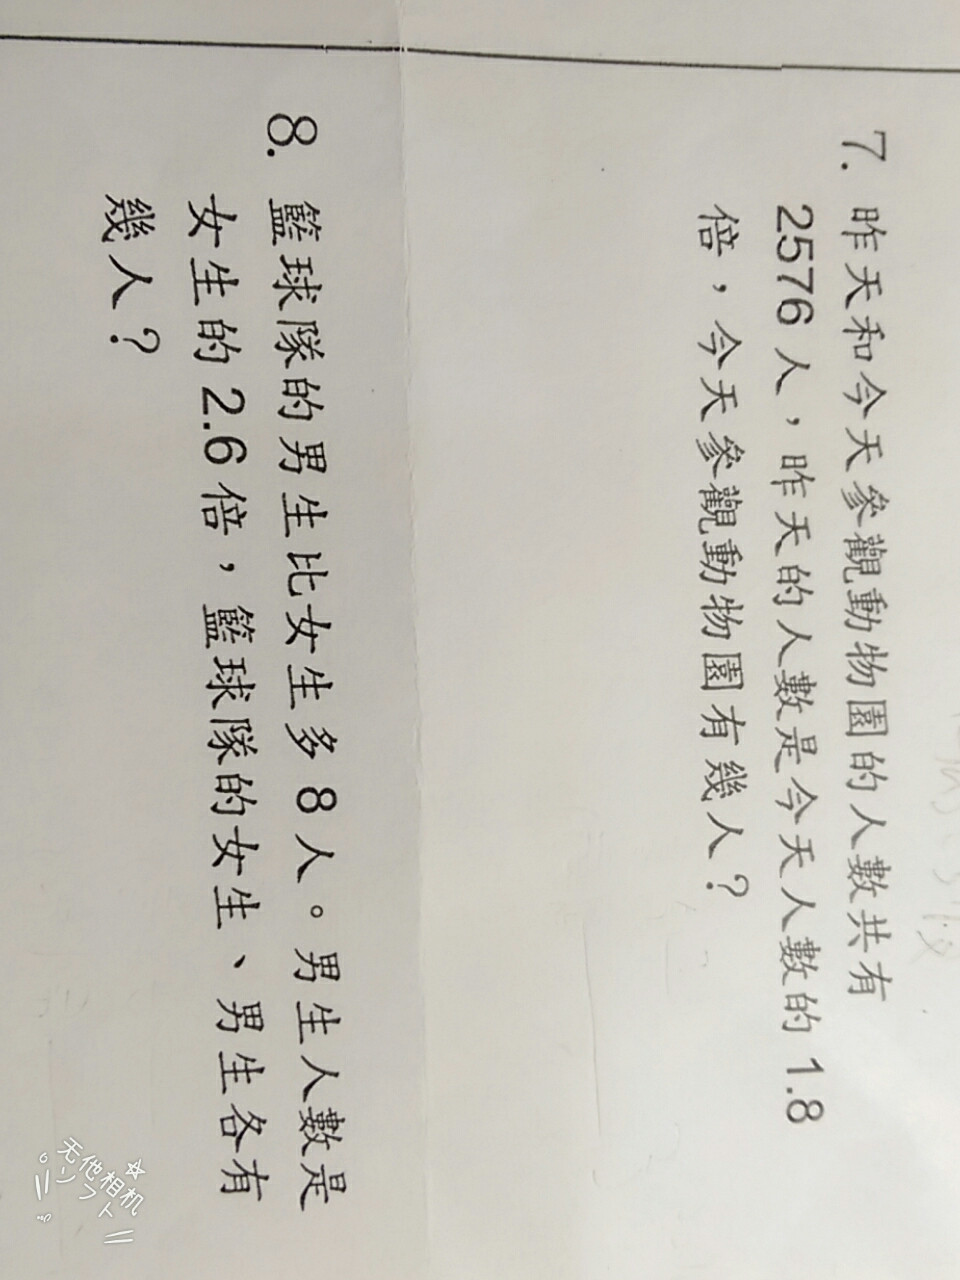 7. 昨天和今天參觀動物園的人數共有
2576 人，昨天的人數是今天人數的 1.8
倍，今天參觀動物園有幾人？
8. 籃球隊的男生比女生多 8 人。男生人數是
女生的 2.6 倍，籃球隊的女生、男生各有
幾人？
无他相机
ソフト